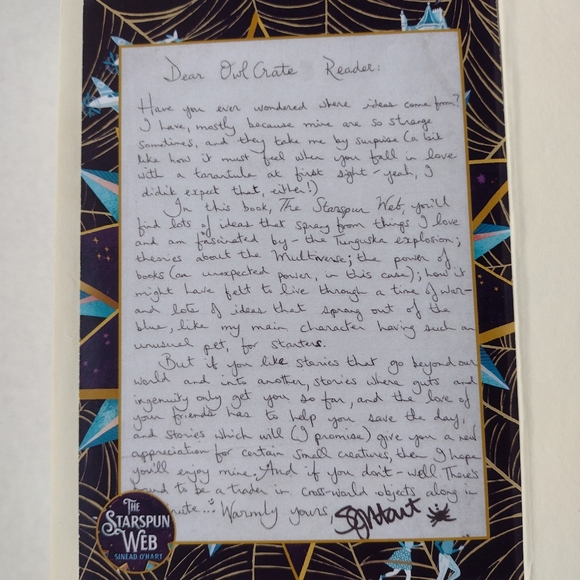 Dear OwlCrate Reader:
Have you ever wondered where ideas come from?
I have, mostly because mine are so strange
sometimes, and they take me by surprise (a bit
like how it must feel when you fall in love
with a tarantula at first sight - yeah, I
didn't expect that, either!)
In this book, The Starspun Web, you'll
find lots of ideas that sprang from things I love
and am fascinated by - the Tunguska explosion;
theories about the Multiverse; the power of
books (an unexpected power, in this case); how it
might have felt to live through a time of war -
and lots of ideas that sprang out of the
blue, like my main character having such an
unusual pet, for starters.
But if you like stories that go beyond our
world and into another, stories where guts and
ingenuity only get you so far, and the love of
your friends has to help you save the day,
and stories which will (I promise) give you a new
appreciation for certain small creatures, then I hope
you'll enjoy mine. And if you don't - well. There's
to be a trader in cross-world objects along in
Warmly yours, SJOHart
THE
STARSPUN
WEB
SINÉAD O'HART